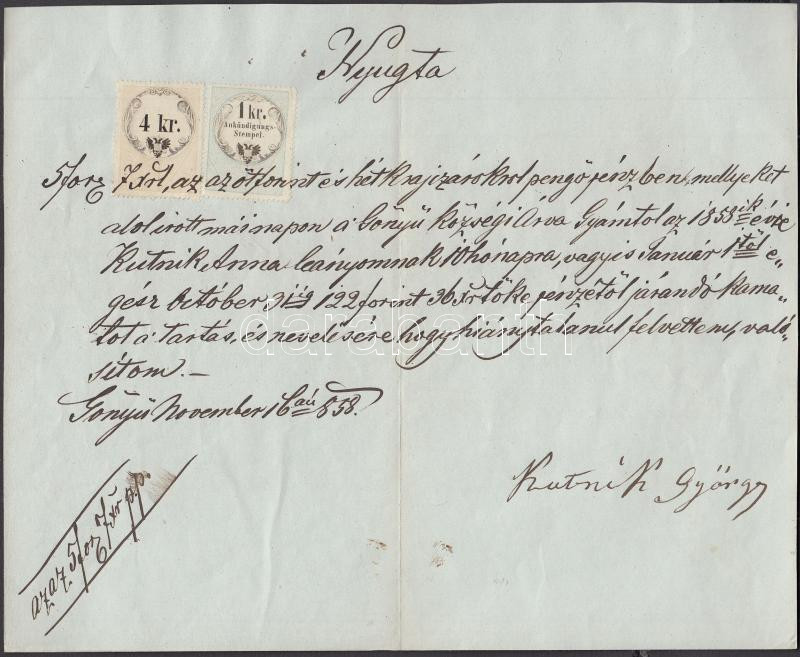 Nyugta
4 kr.
1 kr.
Ankündigungs-
Stempel.
5 for 7 xrl, az az öt forint és hét krajczárokrol pengő pénzben, mellyeket
alolirott mái napon a Gönyü községi Árva Gyámtol az 1858ik évre
Kutnik Anna leányomnak 10 hónapra, vagyis Január 1től e„
gész October 31ig 122 forint 36 xr tőke pénzétől járandó Kama„
tot a tartas, és nevelésére hogy hiánytalanul felvettem, való„
sítom.—
Gönyü November 16án 858.
Kutnik György
az az 5 for 7 xr p.p.
darabanth